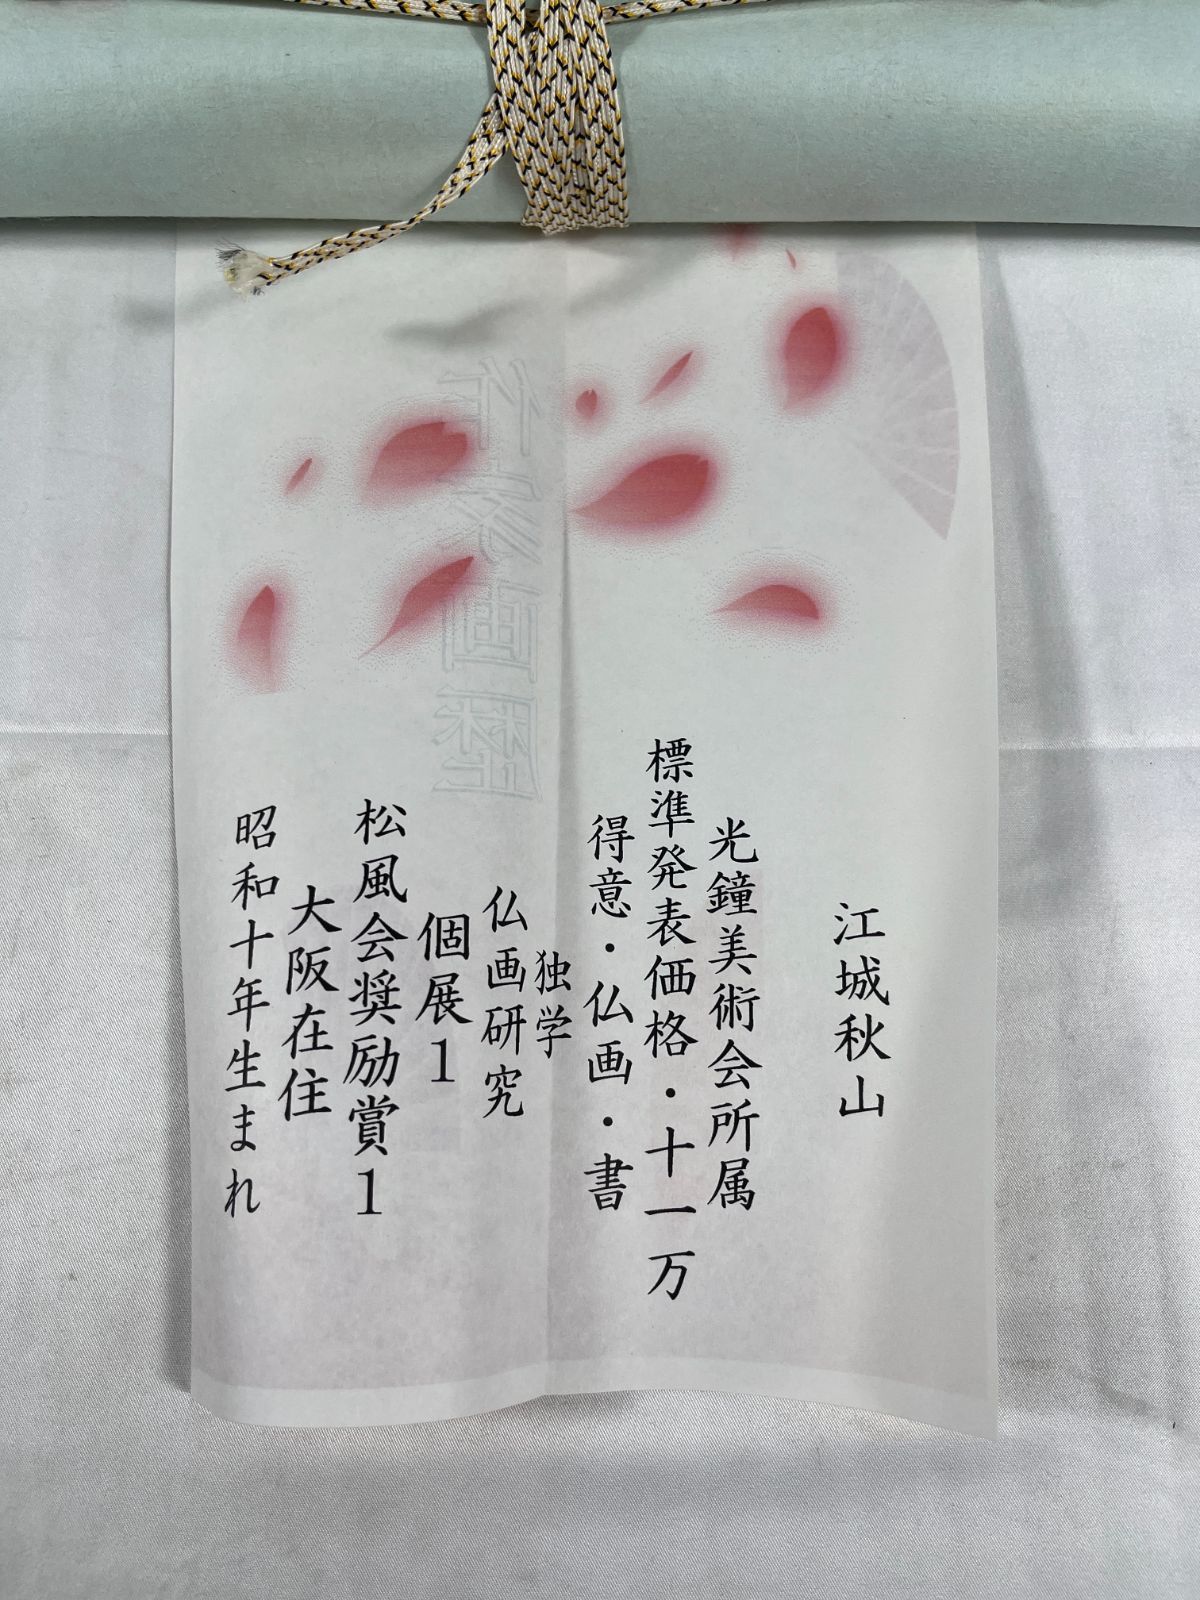 江城秋山
光鐘美術会所属
標準発表価格・十一万
得意・仏画・書
独学
仏画研究
個展1
松風会奨励賞1
大阪在住
昭和十年生まれ
作家画歴